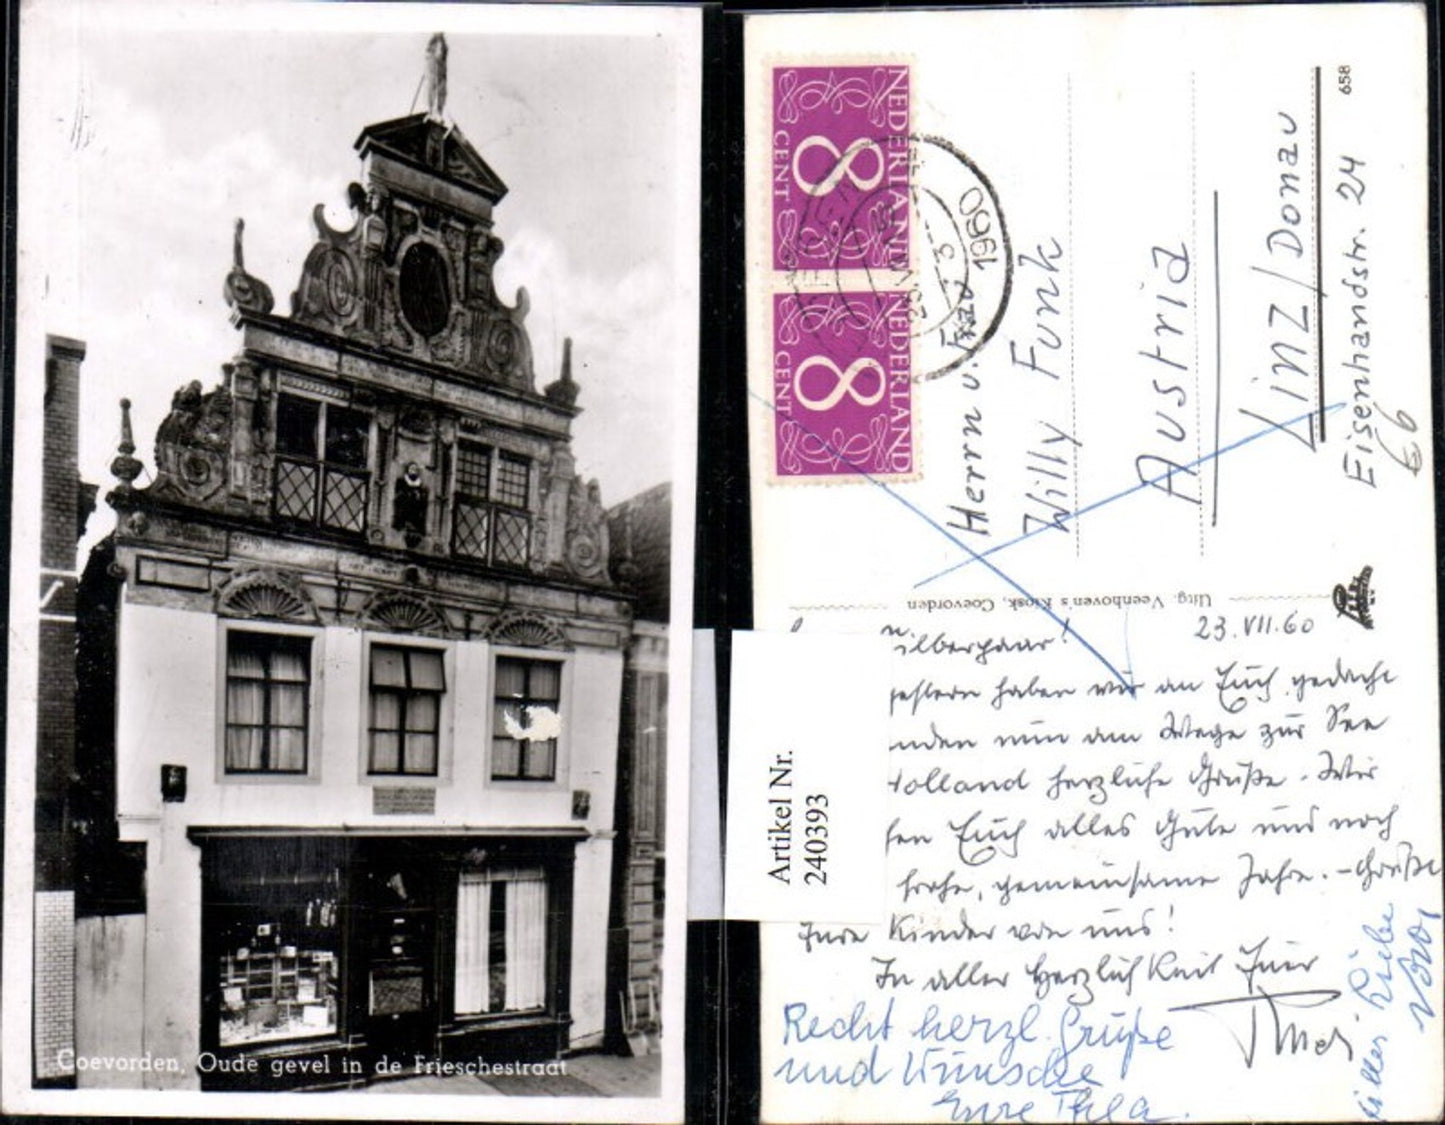 Coevorden, Oude gevel in de Frieschestraat
NEDERLAND
8
CENT
NEDERLAND
8
CENT
1960
Herrn u. Frau
Willy Funk
Austria
Linz/Donau
Eisenhandstr. 24
658
Uitg. Veenhoven's Kiosk, Coevorden
Artikel Nr.
240393
23.VII.60
ilberpaar!
gestern haben wir an Euch gedacht
nden nun am Wege zur See
olland herzliche Grüße. Wir
en Euch alles Gute und noch
frohe, gemeinsame Jahre. – Grüße
Eure Kinder von uns!
In aller Herzlichkeit Euer
Recht herzl. Grüße
und Wünsche
Eure Thea.